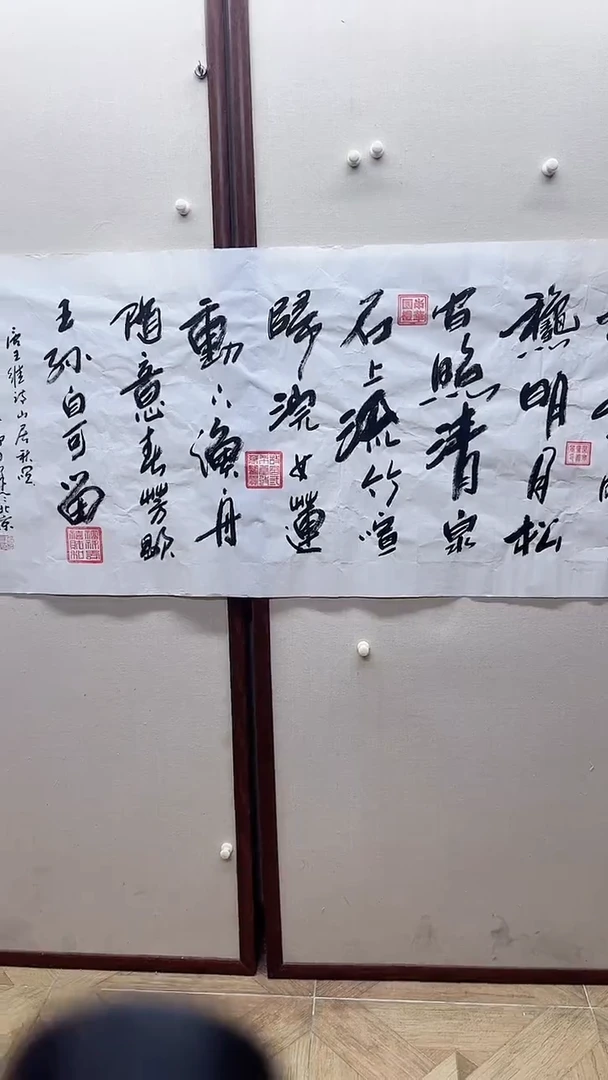 龝明月松
间照清泉
石上流竹喧
歸浣女蓮
動下漁舟
随意春芳歇
王孫自可留
唐王維诗山居秋暝
北京